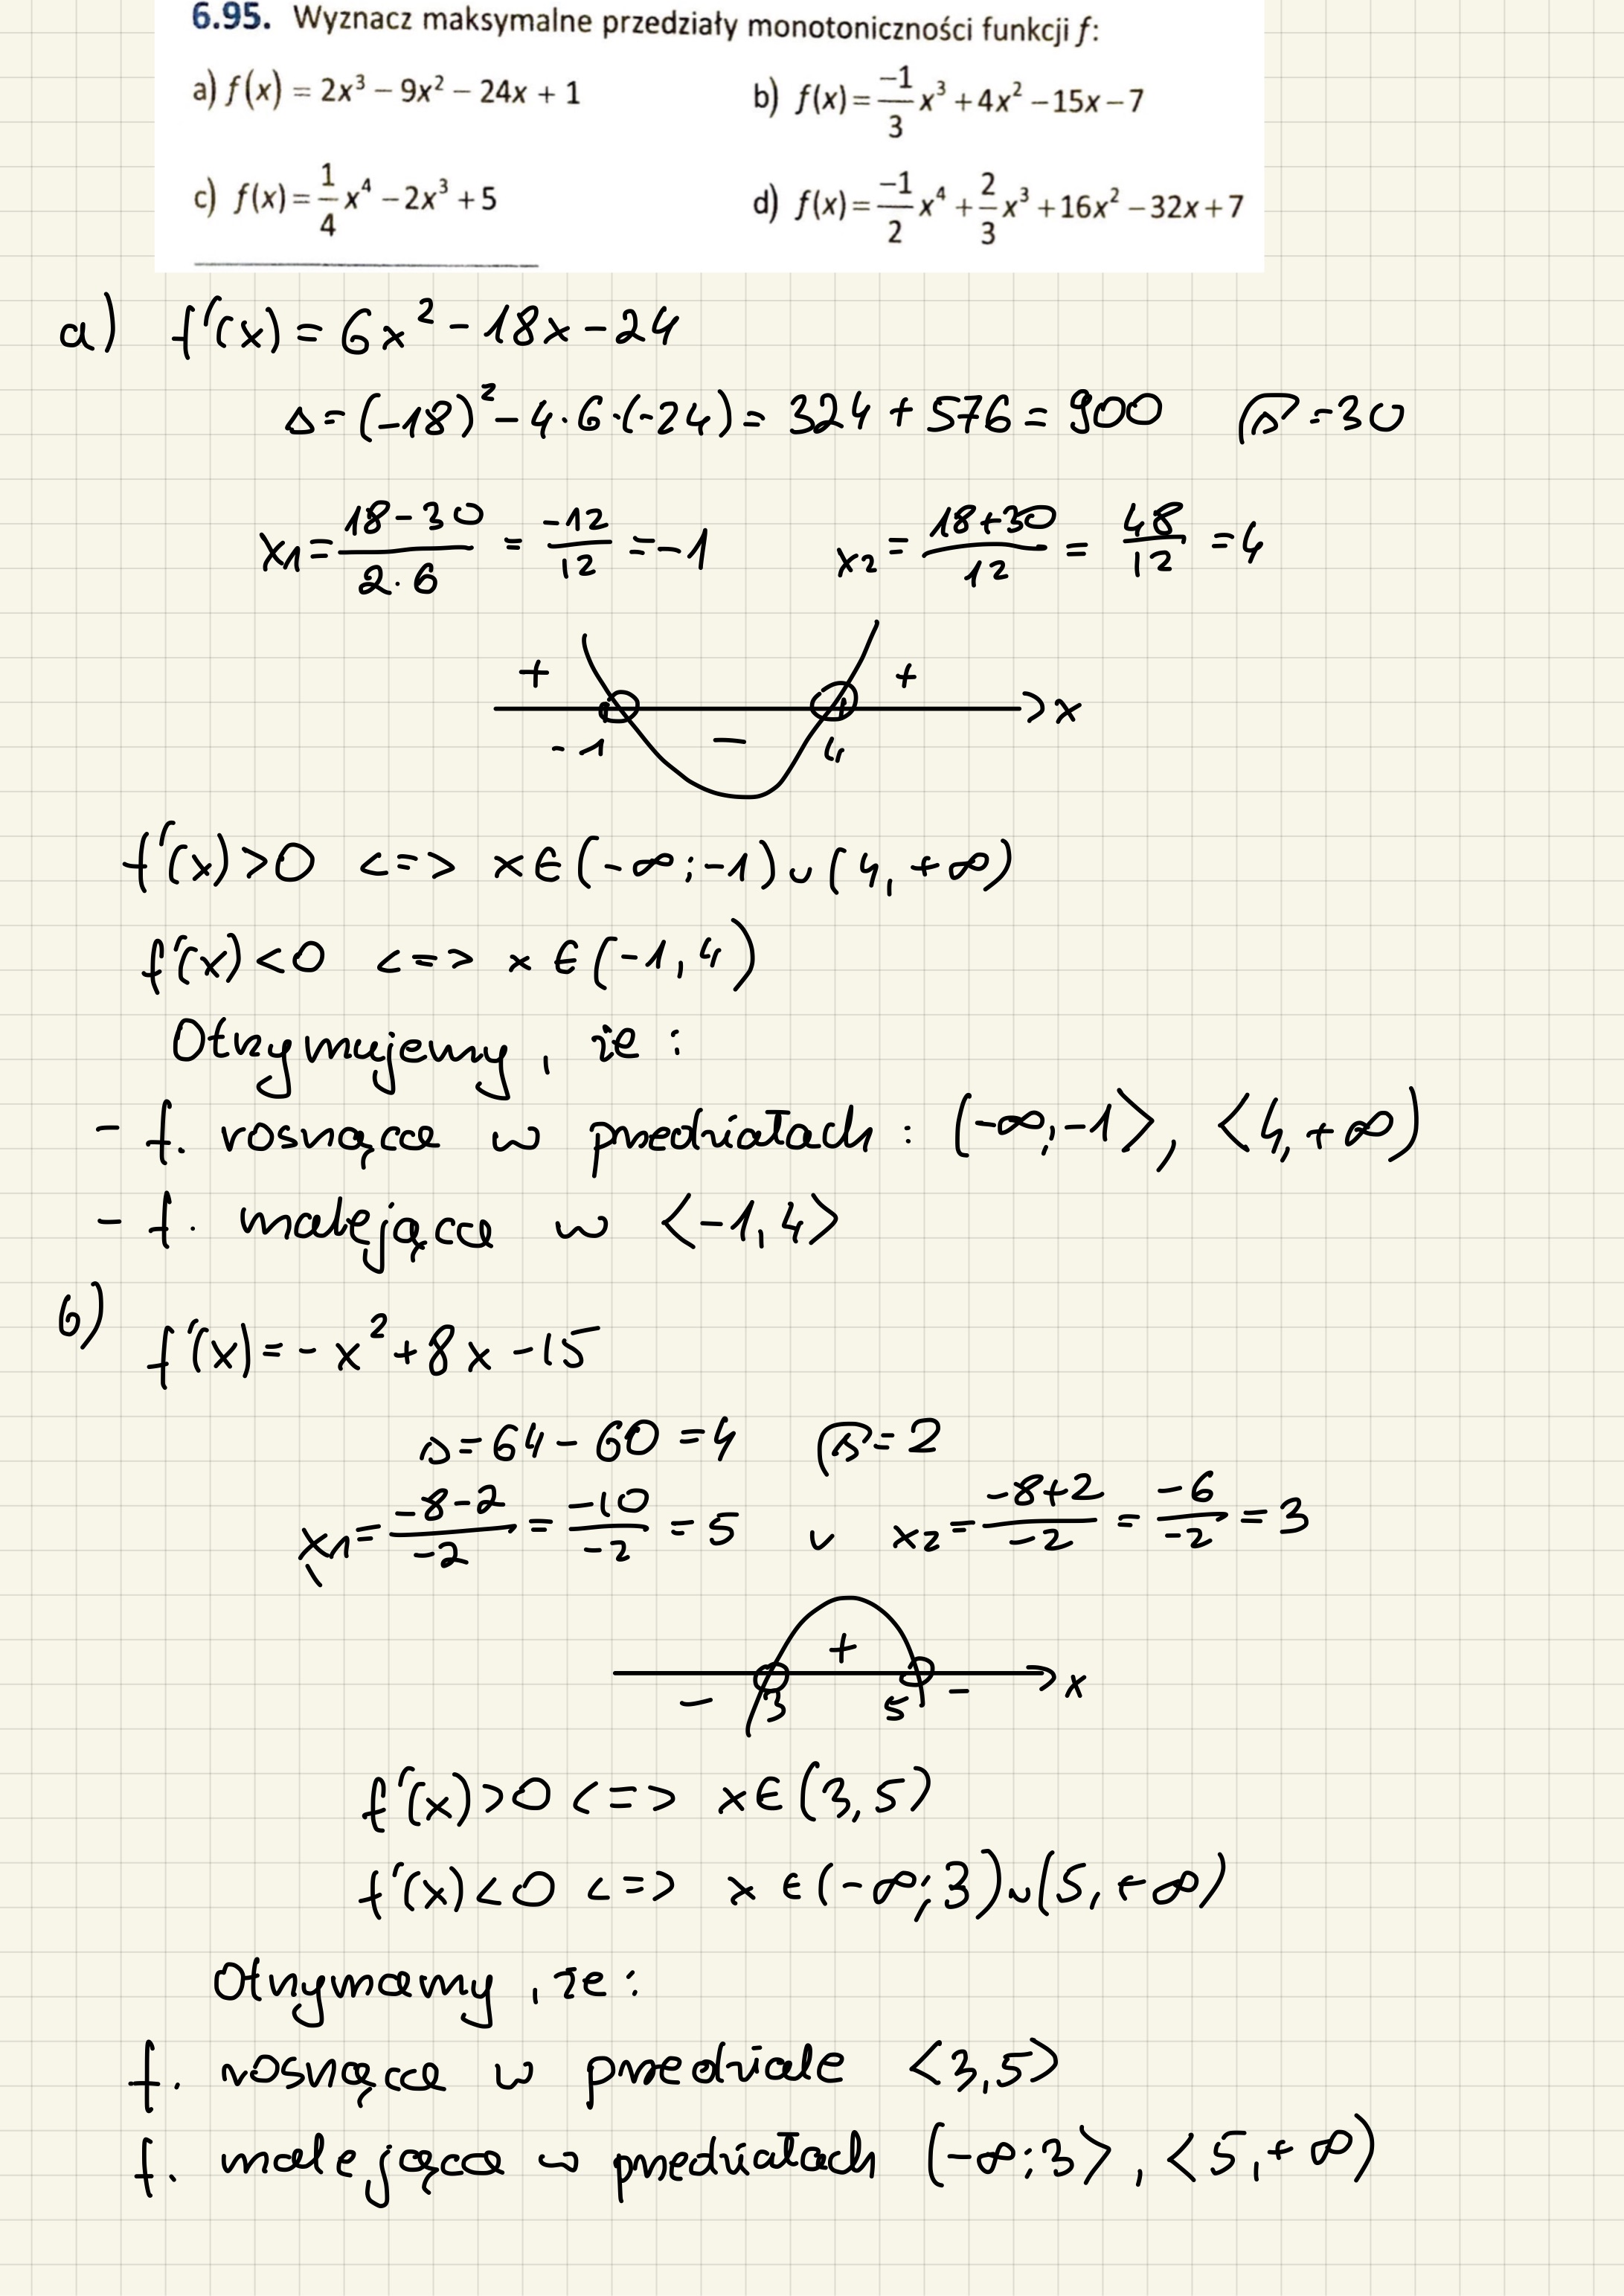 6.95. Wyznacz maksymalne przedziały monotoniczności funkcji f:
a) f(x) = 2x³ − 9x² − 24x + 1
b) f(x) = −1/3 x³ + 4x² − 15x − 7
c) f(x) = 1/4 x⁴ − 2x³ + 5
d) f(x) = −1/2 x⁴ + 2/3 x³ + 16x² − 32x + 7
a) f'(x) = 6x² − 18x − 24
Δ = (−18)² − 4·6·(−24) = 324 + 576 = 900 √Δ = 30
x1 = (18−30)/(2·6) = −12/12 = −1 x2 = (18+30)/12 = 48/12 = 4
+ +
−
x
−1 4
f'(x) > 0 <=> x∈(−∞;−1) ∪ (4, +∞)
f'(x) < 0 <=> x∈(−1, 4)
Otrzymujemy, że:
− f. rosnąca w przedziałach: (−∞;−1>, <4, +∞)
− f. malejąca w <−1, 4>
b) f'(x) = −x² + 8x − 15
Δ = 64 − 60 = 4 √Δ = 2
x1 = (−8−2)/−2 = −10/−2 = 5 ∨ x2 = (−8+2)/−2 = −6/−2 = 3
+
− 3 5 − x
f'(x) > 0 <=> x∈(3, 5)
f'(x) < 0 <=> x∈(−∞;3) ∪ (5, +∞)
Otrzymamy, że:
f. rosnąca w przedziale <3,5>
f. malejąca w przedziałach (−∞;3>, <5, +∞)